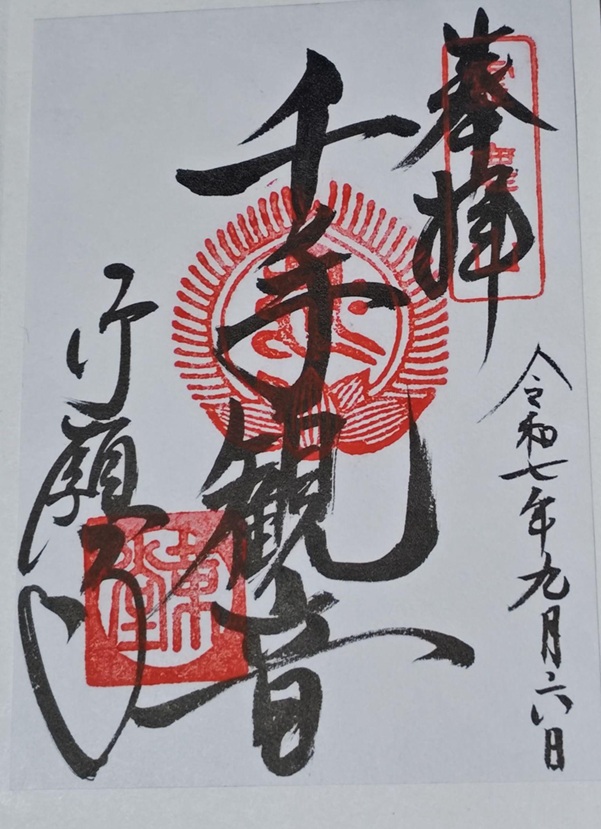 奉拝
令和七年九月六日
千手観音
行願寺
革堂